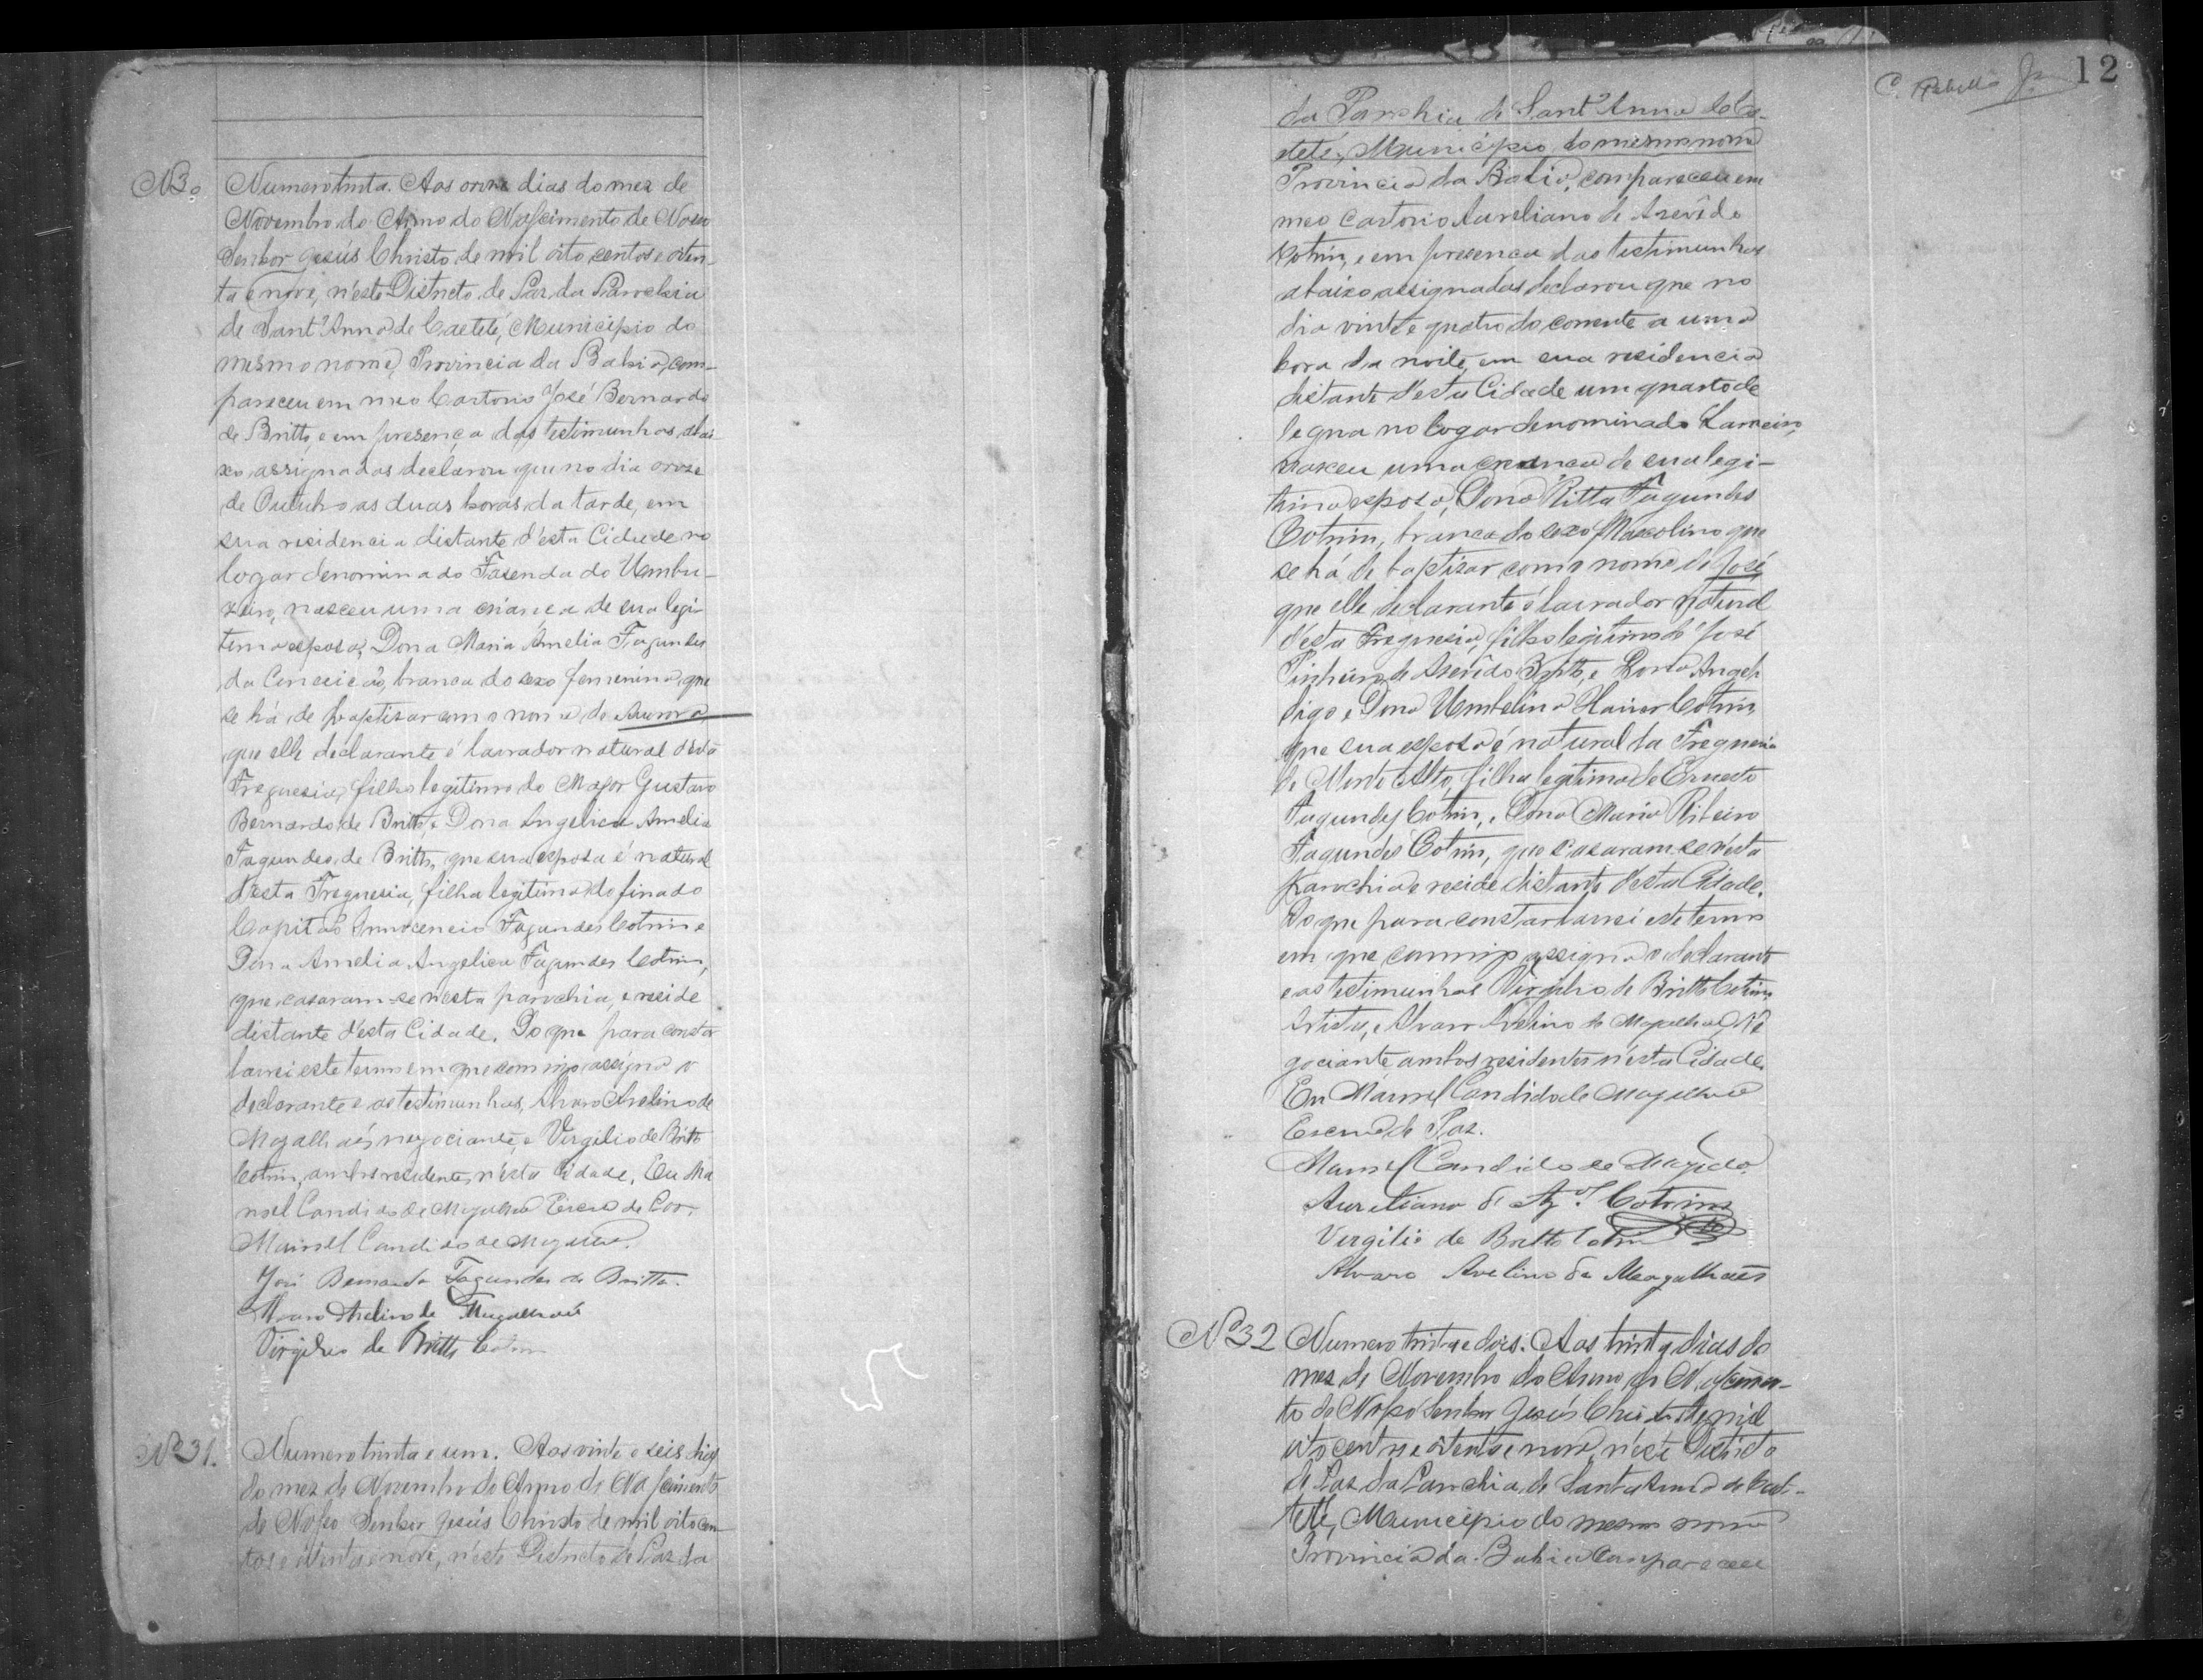 Nº30
Numero trinta. Aos onze dias do mez de
Novembro do Anno do Nascimento de Nosso
Senhor Jesús Christo de mil oito centos e oiten-
ta e nove, n'este Districto de Paz da Parochia
de Sant'Anna de Caeteté, Municipio do
mesmo nome, Provincia da Bahia, com-
pareceu em meo Cartorio José Bernardo
de Britto e em presença das testimunhas abai-
xo assignadas declarou que no dia onze
de Outubro as duas horas da tarde, em
sua residencia distante d'esta Cidade no
logar denominado Fazenda do Umbu-
zeiro, nasceu uma criança de sua legi-
tima esposa, Dona Maria Amelia Fagundes
da Conceição, branca do sexo femenino, que
se há de baptisar com o nome de Aurora,
que elle declarante é lavrador natural d'esta
Freguesia, filho legitimo do Major Gustavo
Bernardo de Britto, e Dona Angelica Amelia
Fagundes de Britto, que sua esposa é natural
d'esta Freguesia, filha legitima do finado
Capitão Innocencio Fagundes Cotrim e
Dona Amelia Angelica Fagundes Cotrim,
que casaram-se n'esta parochia, e reside
distante d'esta Cidade. Do que para constar
lavrei este termo em que commigo assigna o
declarante e as testimunhas, Alvaro Avelino de
Magalhaés negociante, e Virgilio de Britto
Cotrim, ambos residentes n'esta Cidade. Eu Ma
noel Candido de Magalhães Escrᵒ de Paz.
Manoel Candido de Magalhães.
José Bernardo Fagundes de Britto.
Alvaro Avelino de Magalhaés
Virgilio de Britto Cotrim
Nº31.
Numero trinta e um. Aos vinte e seis dias
do mez de Novembro do Anno do Nascimento
de Nosso Senhor Jesús Christo de mil oito cen-
tos e oitenta e nove, n'este Districto de Paz da
12
C. Rabello Jr
da Parochia de Sant'Anna de Ca-
eteté, Municipio do mesmo nome
Provincia da Bahia, compareceu em
meo cartorio Aureliano de Azevêdo
Cotrim, e em presenca das testimunhas
abaixo assignadas declarou que no
dia vinte e quatro do corrente a uma
hora da noite, em sua residencia
distante d'esta Cidade um quarto de
legua no logar denominado
nasceu uma creanca de sua legi-
tima esposa, Dona Ritta Fagundes
Cotrim, branca do sexo Mascolino que
se há de baptisar com o nome de José
que elle declarante é lavrador natural
d'esta Freguesia, filho legitimo de José
Pinheiro de Azevêdo Britto, e Dona Angel
digo e Dona Umbelina Cotrim,
que sua esposa é natural da Freguesia
de Monte Alto, filha legitima de Ernesto
Fagundes Cotrim, e Dona Maria Ribeiro
Fagundes Cotrim, que casaram-se n'esta
parochia e reside distante d'esta Cidade.
Do que para constar lavrei este termo
em que commigo assigna o declarante
e as testimunhas Virgilio de Britto Cotrim
Artista, e Alvaro Avelino de Magalhaés, Ne
gociante, ambos residentes n'esta Cidade.
Eu Manoel Candido de Magalhães
Escrᵒ de Paz.
Manoel Candido de Magalhães
Aureliano de Azᵈᵒ Cotrim
Virgilio de Britto Cotrim
Alvaro Avelino de Magalhaés
Nº32
Numero trinta e dois. Aos trinta dias do
mez de Novembro do Anno do Nascimen-
to de Nosso Senhor Jesús Christo de mil
oito centos e oitenta e nove, n'este Districto
de Paz da Parochia de Santa Anna de Cae-
teté, Municipio do mesmo nome
Provincia da Bahia Compareceu